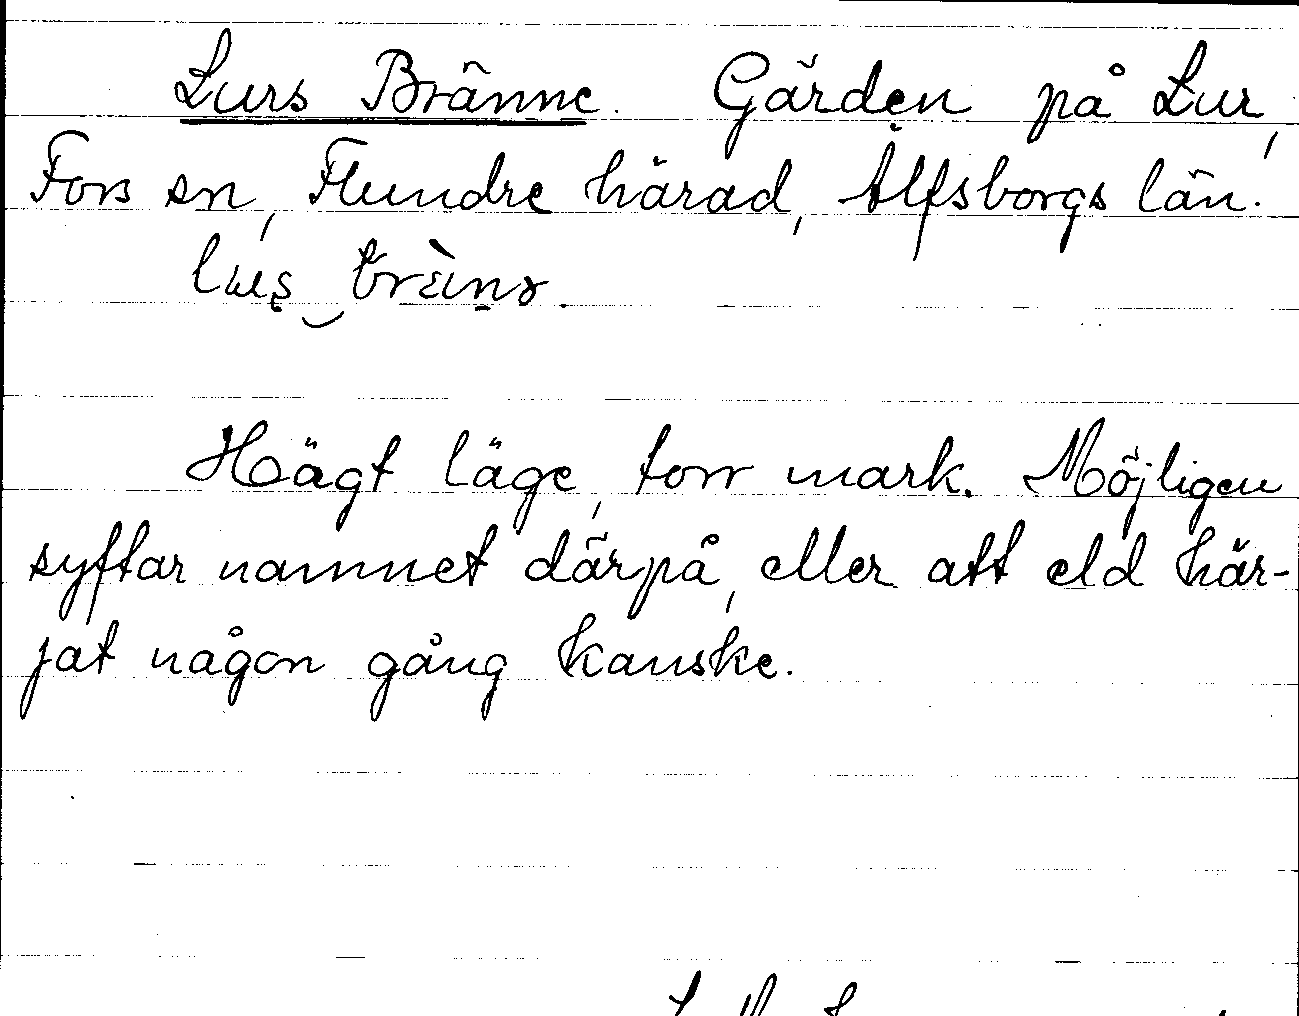 Lurs Bränne. Gärden på Lur,
Fors sn, Flundre härad, Älfsborgs län.
Högt läge, torr mark. Möjligen
syftar namnet därpå, eller att eld här-
jat någon gång kanske.